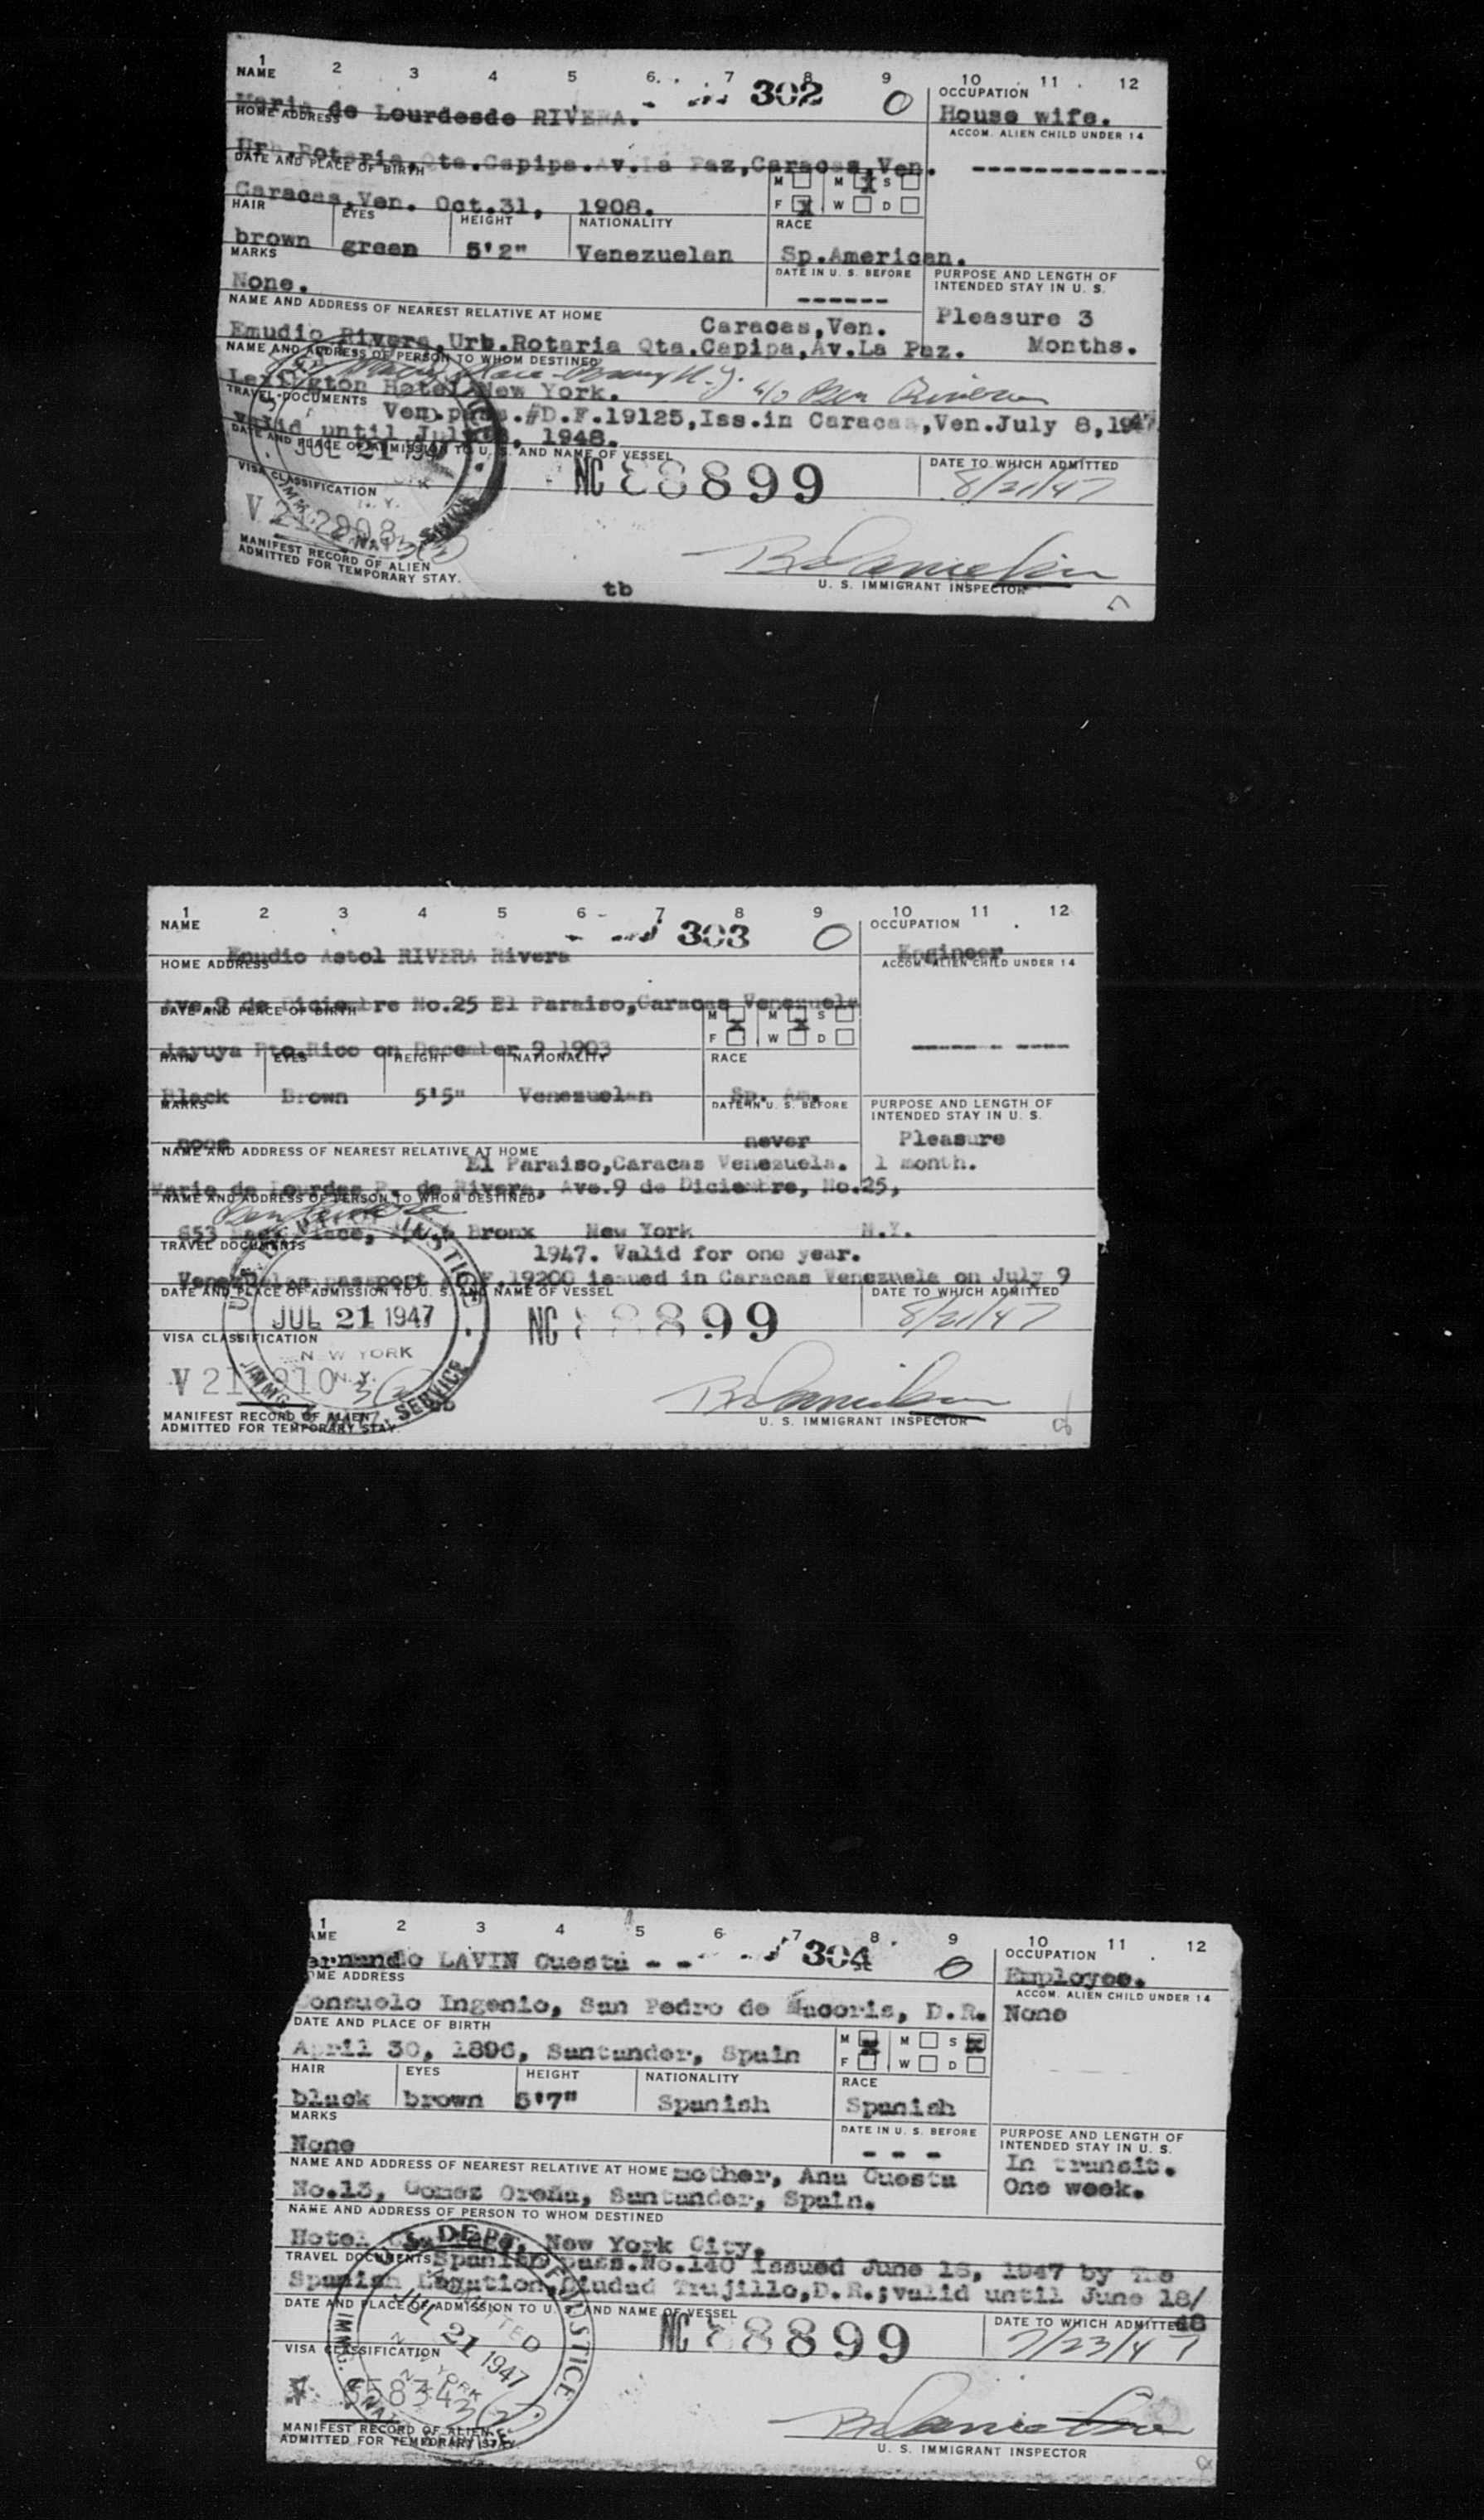 1 2 3 4 5 6 7 8 9 10 11 12
NAME 302 0 OCCUPATION
Maria de Lourdesde RIVERA. House wife.
HOME ADDRESS ACCOM. ALIEN CHILD UNDER 14
Urb.Rotaria,Qta.Capipa.Av.La Paz,Caracas,Ven. ------------
DATE AND PLACE OF BIRTH M M X S
Caracas,Ven. Oct.31, 1908. F X W D
HAIR EYES HEIGHT NATIONALITY RACE
brown green 5'2" Venezuelan Sp.American.
MARKS DATE IN U. S. BEFORE PURPOSE AND LENGTH OF
None. ------ INTENDED STAY IN U. S.
NAME AND ADDRESS OF NEAREST RELATIVE AT HOME Caracas,Ven. Pleasure 3
Emudio Rivera,Urb.Rotaria Qta.Capipa,Av.La Paz. Months.
NAME AND ADDRESS OF PERSON TO WHOM DESTINED
Lexington Hotel New York. c/o Ben Rivera
TRAVEL DOCUMENTS Ven.pass.#D.F.19125,Iss.in Caracas,Ven.July 8,1947
Valid until July 8, 1948.
DATE AND PLACE OF ADMISSION TO U. S. AND NAME OF VESSEL DATE TO WHICH ADMITTED
JUL 21 1947 NC 88899 8/21/47
VISA CLASSIFICATION
N. Y.
V 212908 3(2)
MANIFEST RECORD OF ALIEN
ADMITTED FOR TEMPORARY STAY. tb U. S. IMMIGRANT INSPECTOR
1 2 3 4 5 6 7 8 9 10 11 12
NAME 303 0 OCCUPATION
Emudio Astol RIVERA Rivera Engineer
HOME ADDRESS ACCOM. ALIEN CHILD UNDER 14
Ave.9 de Diciembre No.25 El Paraiso,Caracas Venezuela
DATE AND PLACE OF BIRTH M X M X S
Jayuya Pto.Rico on December 9 1903 F W D
HAIR EYES HEIGHT NATIONALITY RACE
Black Brown 5'5" Venezuelan Sp. Am.
MARKS DATE IN U. S. BEFORE PURPOSE AND LENGTH OF
INTENDED STAY IN U. S.
none never Pleasure
NAME AND ADDRESS OF NEAREST RELATIVE AT HOME
El Paraiso,Caracas Venezuela. 1 month.
Maria de Lourdes P. de Rivera, Ave.9 de Diciembre, No.25,
NAME AND ADDRESS OF PERSON TO WHOM DESTINED
Ben Rivera
853 Place, Bronx New York N.Y.
TRAVEL DOCUMENTS 1947. Valid for one year.
Venezuelan passport F.19200 issued in Caracas Venezuela on July 9
DATE AND PLACE OF ADMISSION TO U. S. AND NAME OF VESSEL DATE TO WHICH ADMITTED
JUL 21 1947 NC 88899 8/21/47
VISA CLASSIFICATION
NEW YORK
N.Y.
3(2)
IMMIG. & NATZ. SERVICE
MANIFEST RECORD OF ALIEN U. S. IMMIGRANT INSPECTOR
ADMITTED FOR TEMPORARY STAY.
1 2 3 4 5 6 7 8 9 10 11 12
AME 304 0 OCCUPATION
ernando LAVIN Cuesta - - Employee.
OME ADDRESS ACCOM. ALIEN CHILD UNDER 14
onsuelo Ingenio, San Pedro de Macoris, D.R. None
DATE AND PLACE OF BIRTH M X M S X
April 30, 1896, Santander, Spain F W D
HAIR EYES HEIGHT NATIONALITY RACE
black brown 5'7" Spanish Spanish
MARKS DATE IN U. S. BEFORE PURPOSE AND LENGTH OF
INTENDED STAY IN U. S.
None - - - In transit.
NAME AND ADDRESS OF NEAREST RELATIVE AT HOME mother, Ana Cuesta One week.
No.13, Gomez Oreña, Santander, Spain.
NAME AND ADDRESS OF PERSON TO WHOM DESTINED
Hotel New York City.
TRAVEL DOCUMENTS Spanish pass.No.140 issued June 18, 1947 by The
Spanish Legation,Ciudad Trujillo,D.R.;valid until June 18/
48
DATE AND PLACE OF ADMISSION TO U. S. AND NAME OF VESSEL DATE TO WHICH ADMITTED
U.S. DEPT. OF JUSTICE
ADMITTED
JUL 21 1947 NC 88899 7/23/47
VISA CLASSIFICATION
NEW YORK
3(2)
MANIFEST RECORD OF ALIEN
ADMITTED FOR TEMPORARY STAY. U. S. IMMIGRANT INSPECTOR